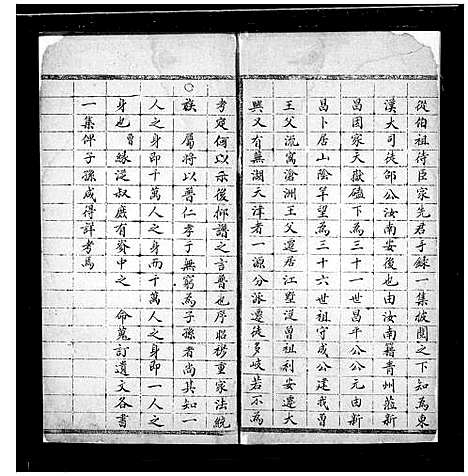 從伯祖待臣家先君手錄一集披閱之下知為東
漢大司徒邵公汝南安後也由汝南籍青州蒞新
昌因家天嶽磕下為三十一世昌平公公元由新
昌卜居山陰羊望為三十六世祖守成公建我曾
王父流寓滄洲王父遷居江墅從曾祖利安遷大
興又有蕪湖天津者一源分派遷徙多岐若不為
考定何以示後抑譜之言普也序昭穆重家法統
族屬將以普仁孝于無窮為子孫者尚其知一
人之身即千萬人之身而千萬人之身即一人之
身也曾緣從叔廣有賫中之命蒐訂遺文各書
一集俾子孫咸得詳考焉